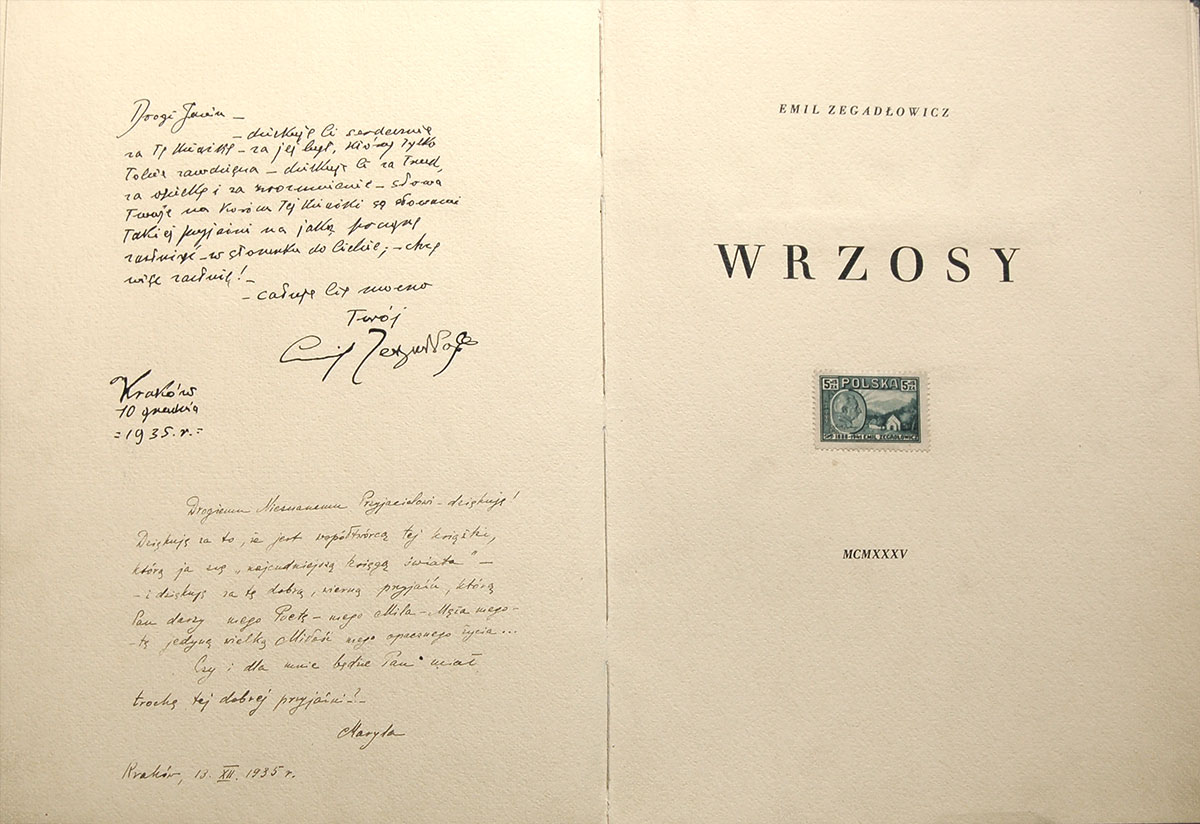 Drogi Janie –
– dziękuję Ci serdecznie
za Tę Książkę – za jej byt, który tylko
Tobie zawdzięcza – dziękuję Ci za Trud,
za opiekę i za zrozumienie – słowa
Twoje na końcu Tej Książki są słowami
Takiej przyjaźni na jaką pragnę
zasłużyć – w stosunku do Ciebie; – chcę
więc zasłużyć! –
– całuję Cię mocno
Twój
Emil Zegadłowicz
Kraków
10 grudnia
=1935.r.=
Drogiemu Nieznanemu Przyjacielowi – dziękuję!
Dziękuję za to, że jest współtwórcą tej książki,
którą ja zwę „najcudniejszą księgą świata" –
– i dziękuję za tę dobrą, wierną przyjaźń, którą
Pan darzy mego Poetę – mego Miła – Męża mego –
– tę jedyną wielką Miłość mego opacznego życia ...
Czy i dla mnie będzie Pan miał
trochę tej dobrej przyjaźni? –
Maryla
Kraków, 13. XII. 1935 r.
EMIL ZEGADŁOWICZ
WRZOSY
5 ZŁ POLSKA 5 ZŁ
1888 - 1941 EMIL ZEGADŁOWICZ
MCMXXXV